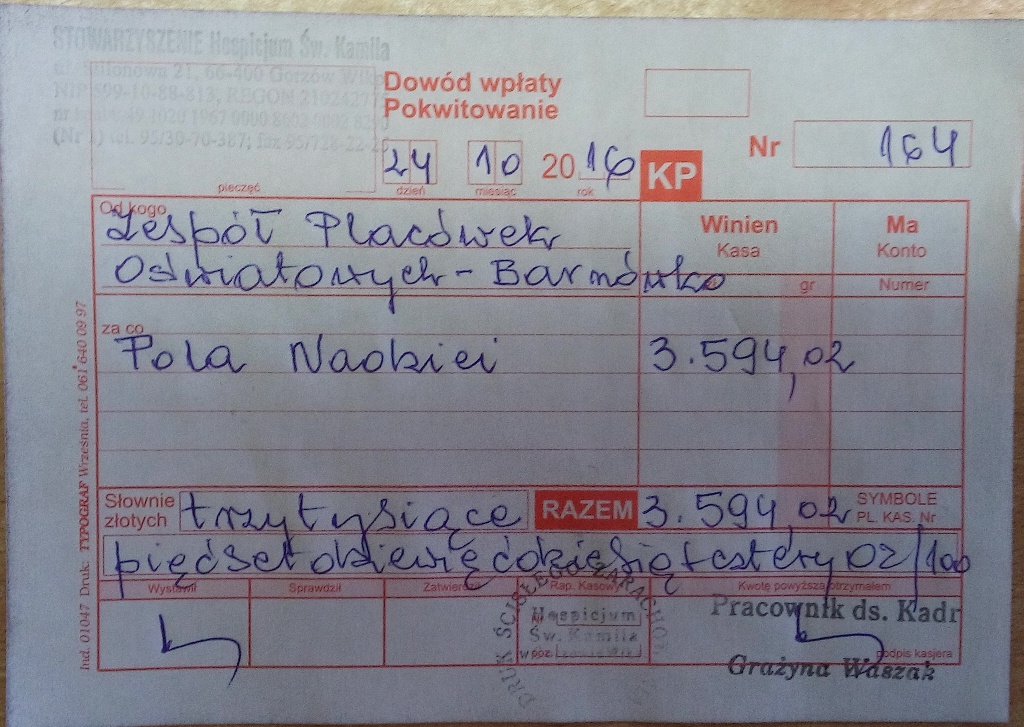 STOWARZYSZENIE Hospicjum Św. Kamila
21, 66-400 Gorzów Wlkp.
NIP 599-10-88-813, REGON
(Nr 1) tel. 95/30-70-387; fax
Dowód wpłaty
Pokwitowanie
Nr 164
24 10 2016 KP
pieczęć dzień miesiąc rok
Od kogo Zespół Placówek
Oświatowych - Barnówko
Winien Ma
Kasa Konto
gr Numer
za co
Pola Nadziei 3.594,02
Słownie złotych trzy tysiące RAZEM 3.594,02 SYMBOLE PL. KAS. Nr
pięćset dziewięćdziesiąt cztery 02/100
Wystawił Sprawdził Zatwierdził Rap. Kasowy Kwotę powyższą otrzymałem
DRUK ŚCISŁEGO ZARACHOW.
Hospicjum
Św. Kamila
Pracownik ds. Kadr
podpis kasjera
Grażyna Waszak
Ind. 01047 Druk: TYPOGRAF Września, tel. 061 640 09 97